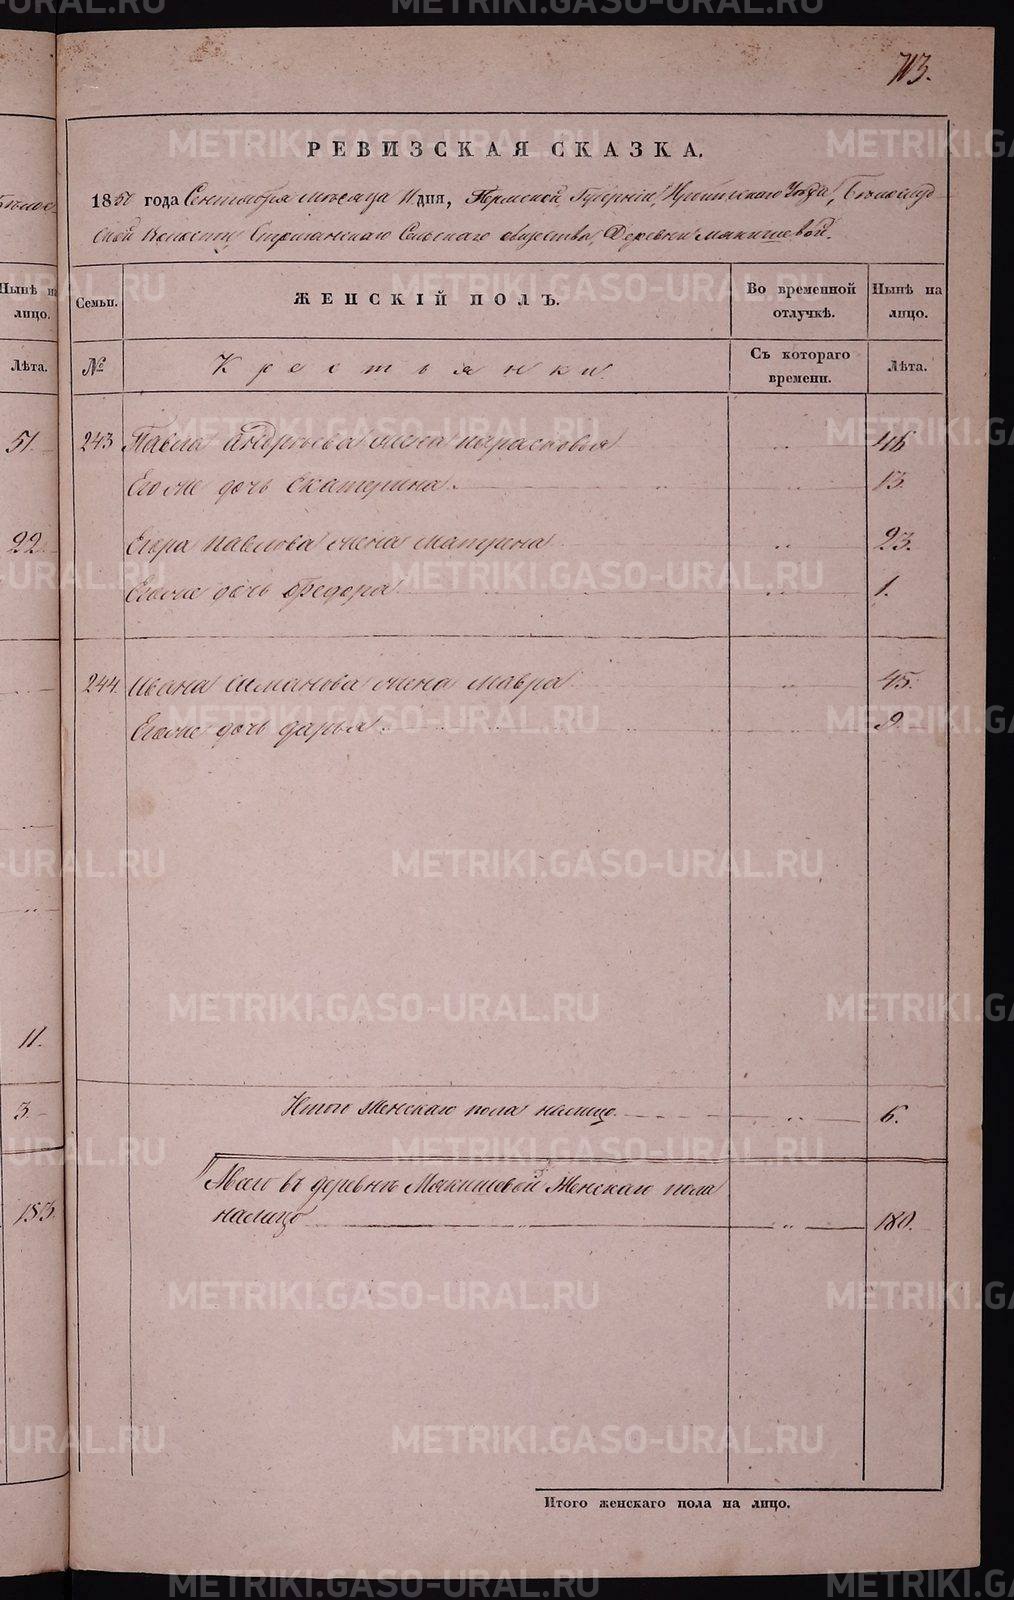 713.
РЕВИЗСКАЯ СКАЗКА.
1850 года Сентября месяца 11 дня, Пермской Губерніи, Ирбитскаго Уѣзда, Бѣлослуд-
ской Волости, Стриганскаго Сельскаго общества, Деревни Мякишевой.
Нынѣ на лицо.
Лѣта.
Семьи.
ЖЕНСКІЙ ПОЛЪ.
Во временной отлучкѣ.
Нынѣ на лицо.
№
Крестьянки
Съ котораго времени.
Лѣта.
51.
243 Павла Андреева жена Парасковья 46
Его же дочь Екатерина. 13.
22.
Егора Павлова жена Матрена 23.
Его же дочь Федора 1.
244. Ивана Симанова жена Мавра 45.
Его же дочь Дарья. 9.
11.
3
Итого женскаго пола налицо 6.
Всего въ деревнѣ Мякишевой Женскаго пола
налицо 180.
153.
Итого женскаго пола на лицо.
METRIKI.GASO-URAL.RU